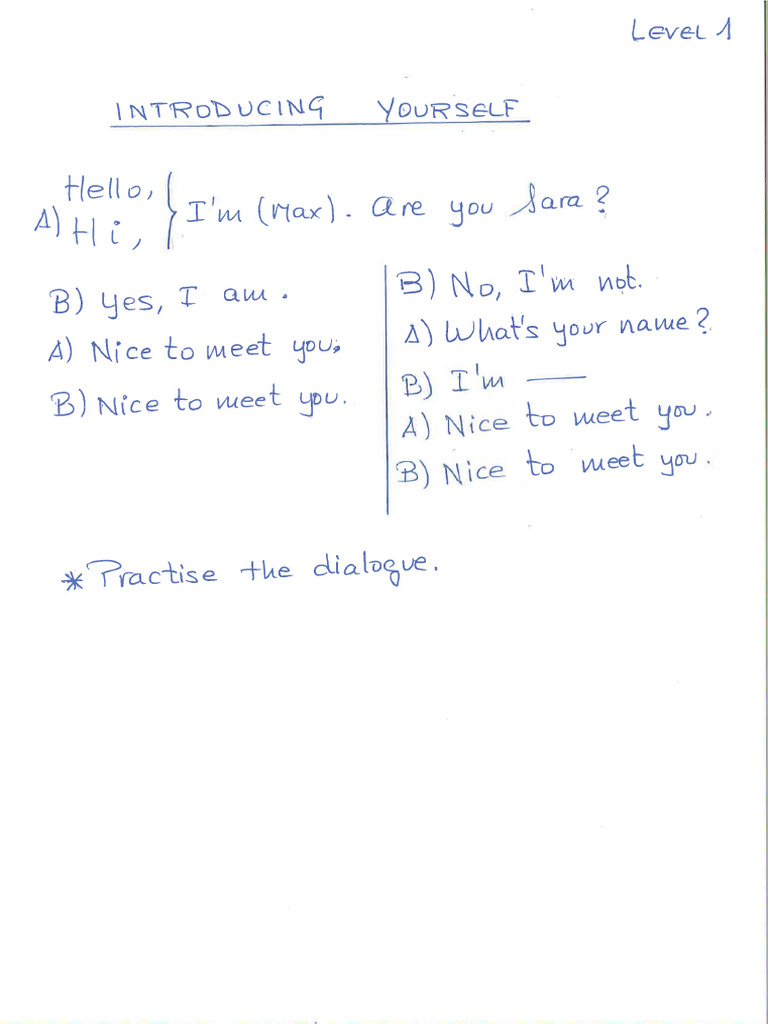 Level 1
INTRODUCING YOURSELF
Hello,
A) Hi, } I'm (Max). Are you Sara?
B) Yes, I am.
A) Nice to meet you.
B) Nice to meet you.
B) No, I'm not.
A) What's your name?
B) I'm ___
A) Nice to meet you.
B) Nice to meet you.
* Practise the dialogue.